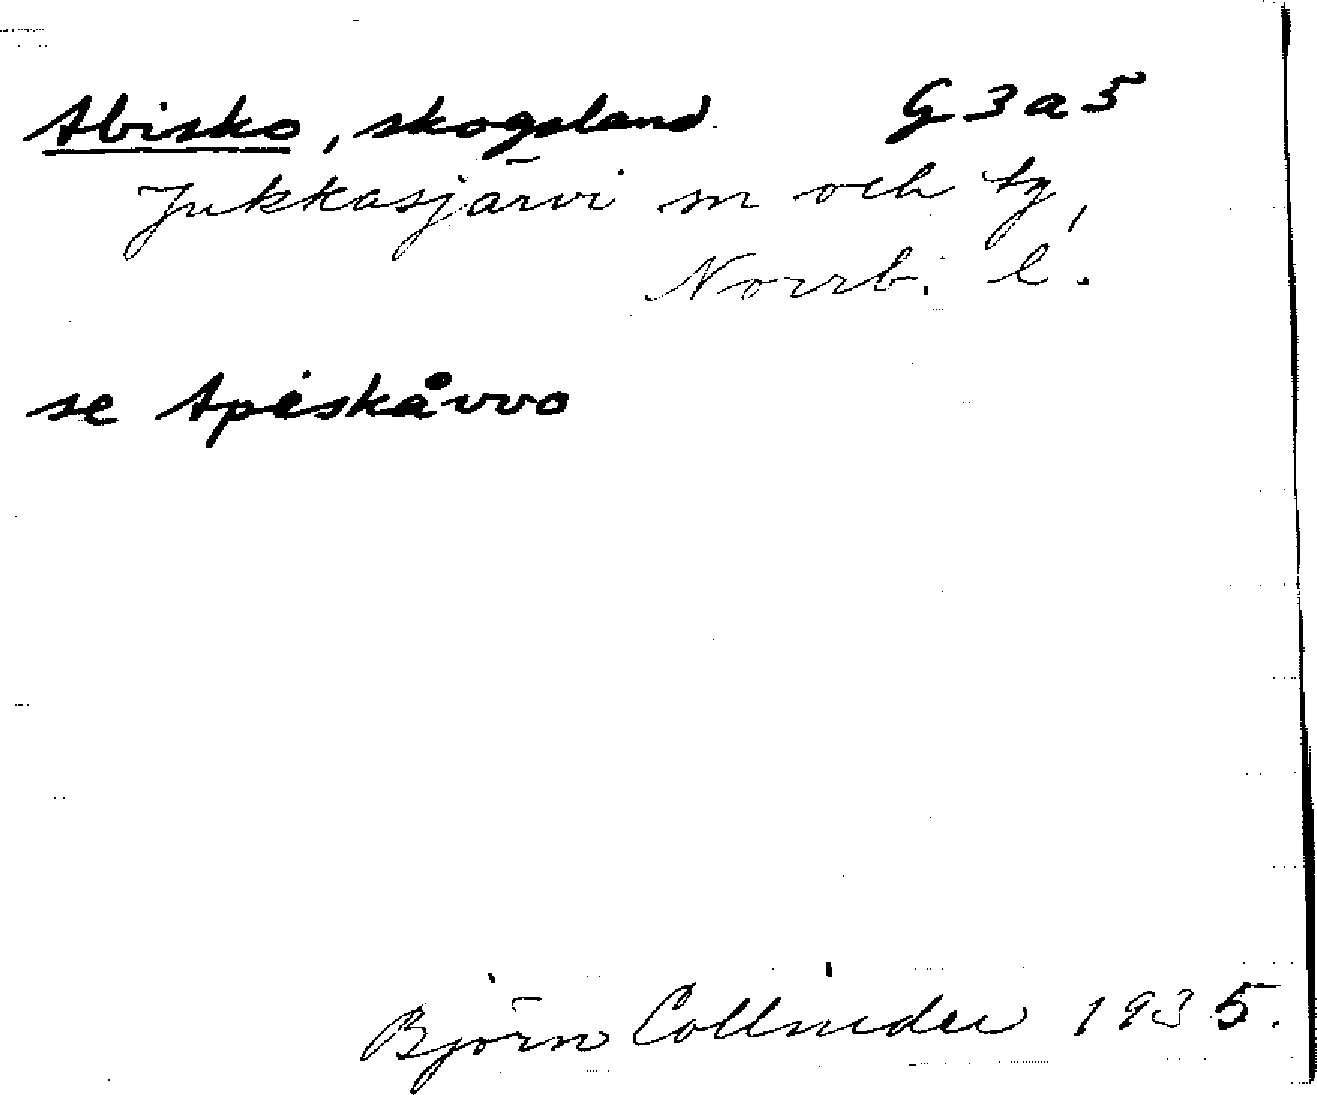 Abisko, skogsland G3a5
Jukkasjärvi sn och tg,
Norrb. l.
se Apeskåvvo
Björn Collinder 1935.